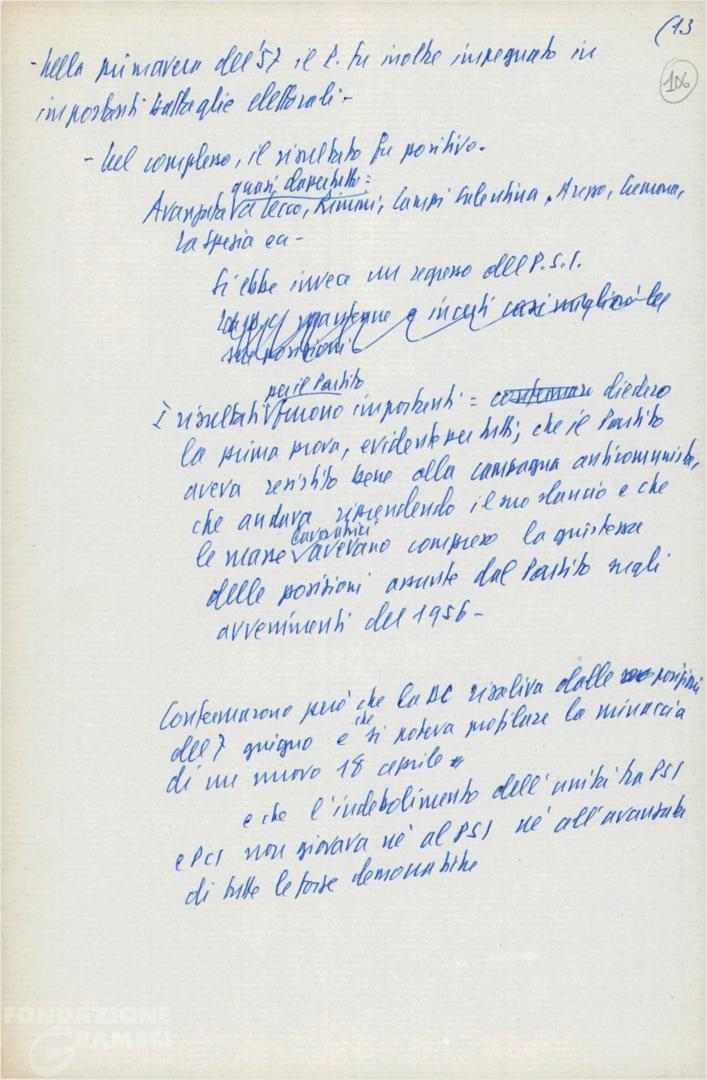 (13
106
- Nella primavera del '57 il P. fu inoltre impegnato in
importanti battaglie elettorali -
- Nel complesso, il risultato fu positivo.
quasi dappertutto =
Avanzata a Lecco, Rimini, Campi Salentina, Arezzo, Cremona,
La Spezia ecc -
Si ebbe invece un regresso del P.S.I.
mantenne e in certi casi migliorò le
sue posizioni
per il Partito
I risultati furono importanti = confermano diedero
la prima prova, evidente per tutti, che il Partito
aveva resistito bene alla campagna anticomunista,
che andava riprendendo il suo slancio e che
lavoratrici
le masse avevano compreso la giustezza
delle posizioni assunte dal Partito negli
avvenimenti del 1956 -
Confermarono però che la DC risaliva dalle posizioni
del 7 giugno e si poteva profilare la minaccia
che
di un nuovo 18 aprile
e che l'indebolimento dell'unità tra PSI
e PCI non giovava nè al PSI nè all'avanzata
di tutte le forze democratiche
FONDAZIONE
GRAMSCI